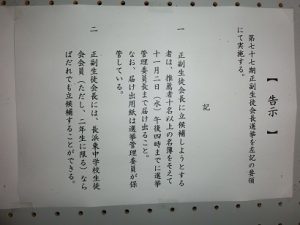 【 告示 】
第七十七期正副生徒会長選挙を左記の要領
にて実施する。
記
一 正副生徒会長に立候補しようとする
者は、推薦者十名以上の名簿をそえて
十一月二日(水)午後四時までに選挙
管理委員長まで届け出ること。
なお、届け出用紙は選挙管理委員が保
管している。
二 正副生徒会長には、長浜東中学校生徒
会会員(ただし、二年生に限る)なら
ばだれでも立候補することができる。